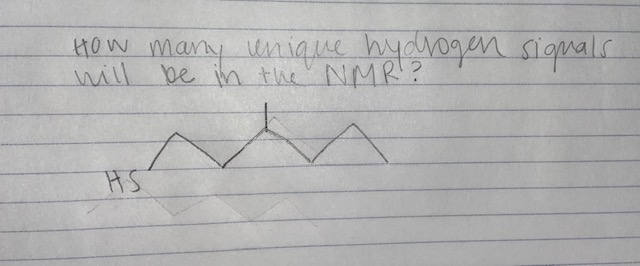 How many unique hydrogen signals
will be in the NMR?
HS